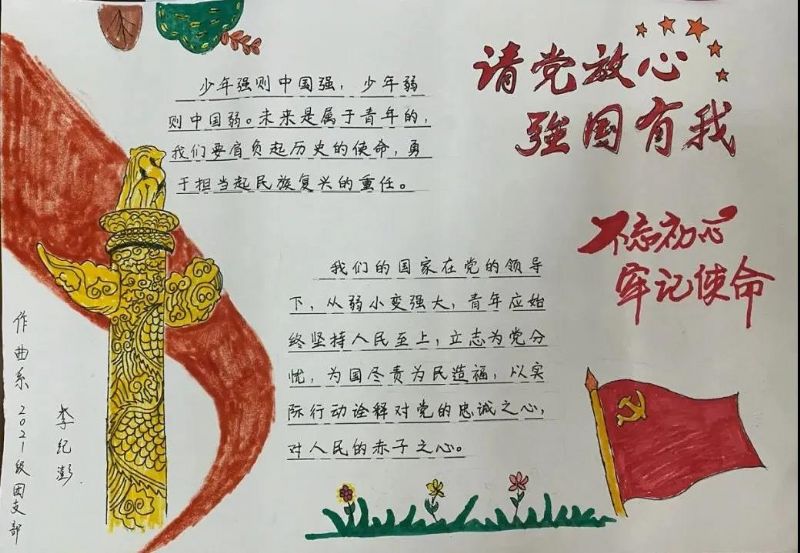 请党放心
强国有我
少年强则中国强，少年弱
则中国弱。未来是属于青年的，
我们要肩负起历史的使命，勇
于担当起民族复兴的重任。
不忘初心
牢记使命
我们的国家在党的领导
下，从弱小变强大，青年应始
终坚持人民至上，立志为党分
忧，为国尽责为民造福，以实
际行动诠释对党的忠诚之心，
对人民的赤子之心。
作曲系2021级团支部
李纪澎